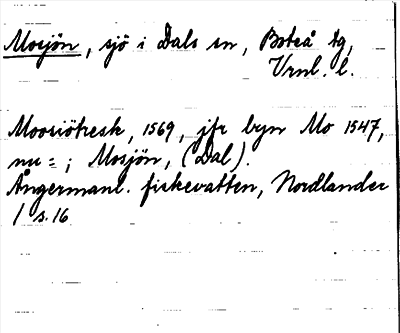 Mosjön, sjö i Dals sn, Boteå tg,
Vrnl. l.
Moosiötresk, 1569, jfr byn Mo 1547,
nu = ; Mosjön, (Dal).
Ångermanl. fiskevatten, Nordlander
1 s. 16